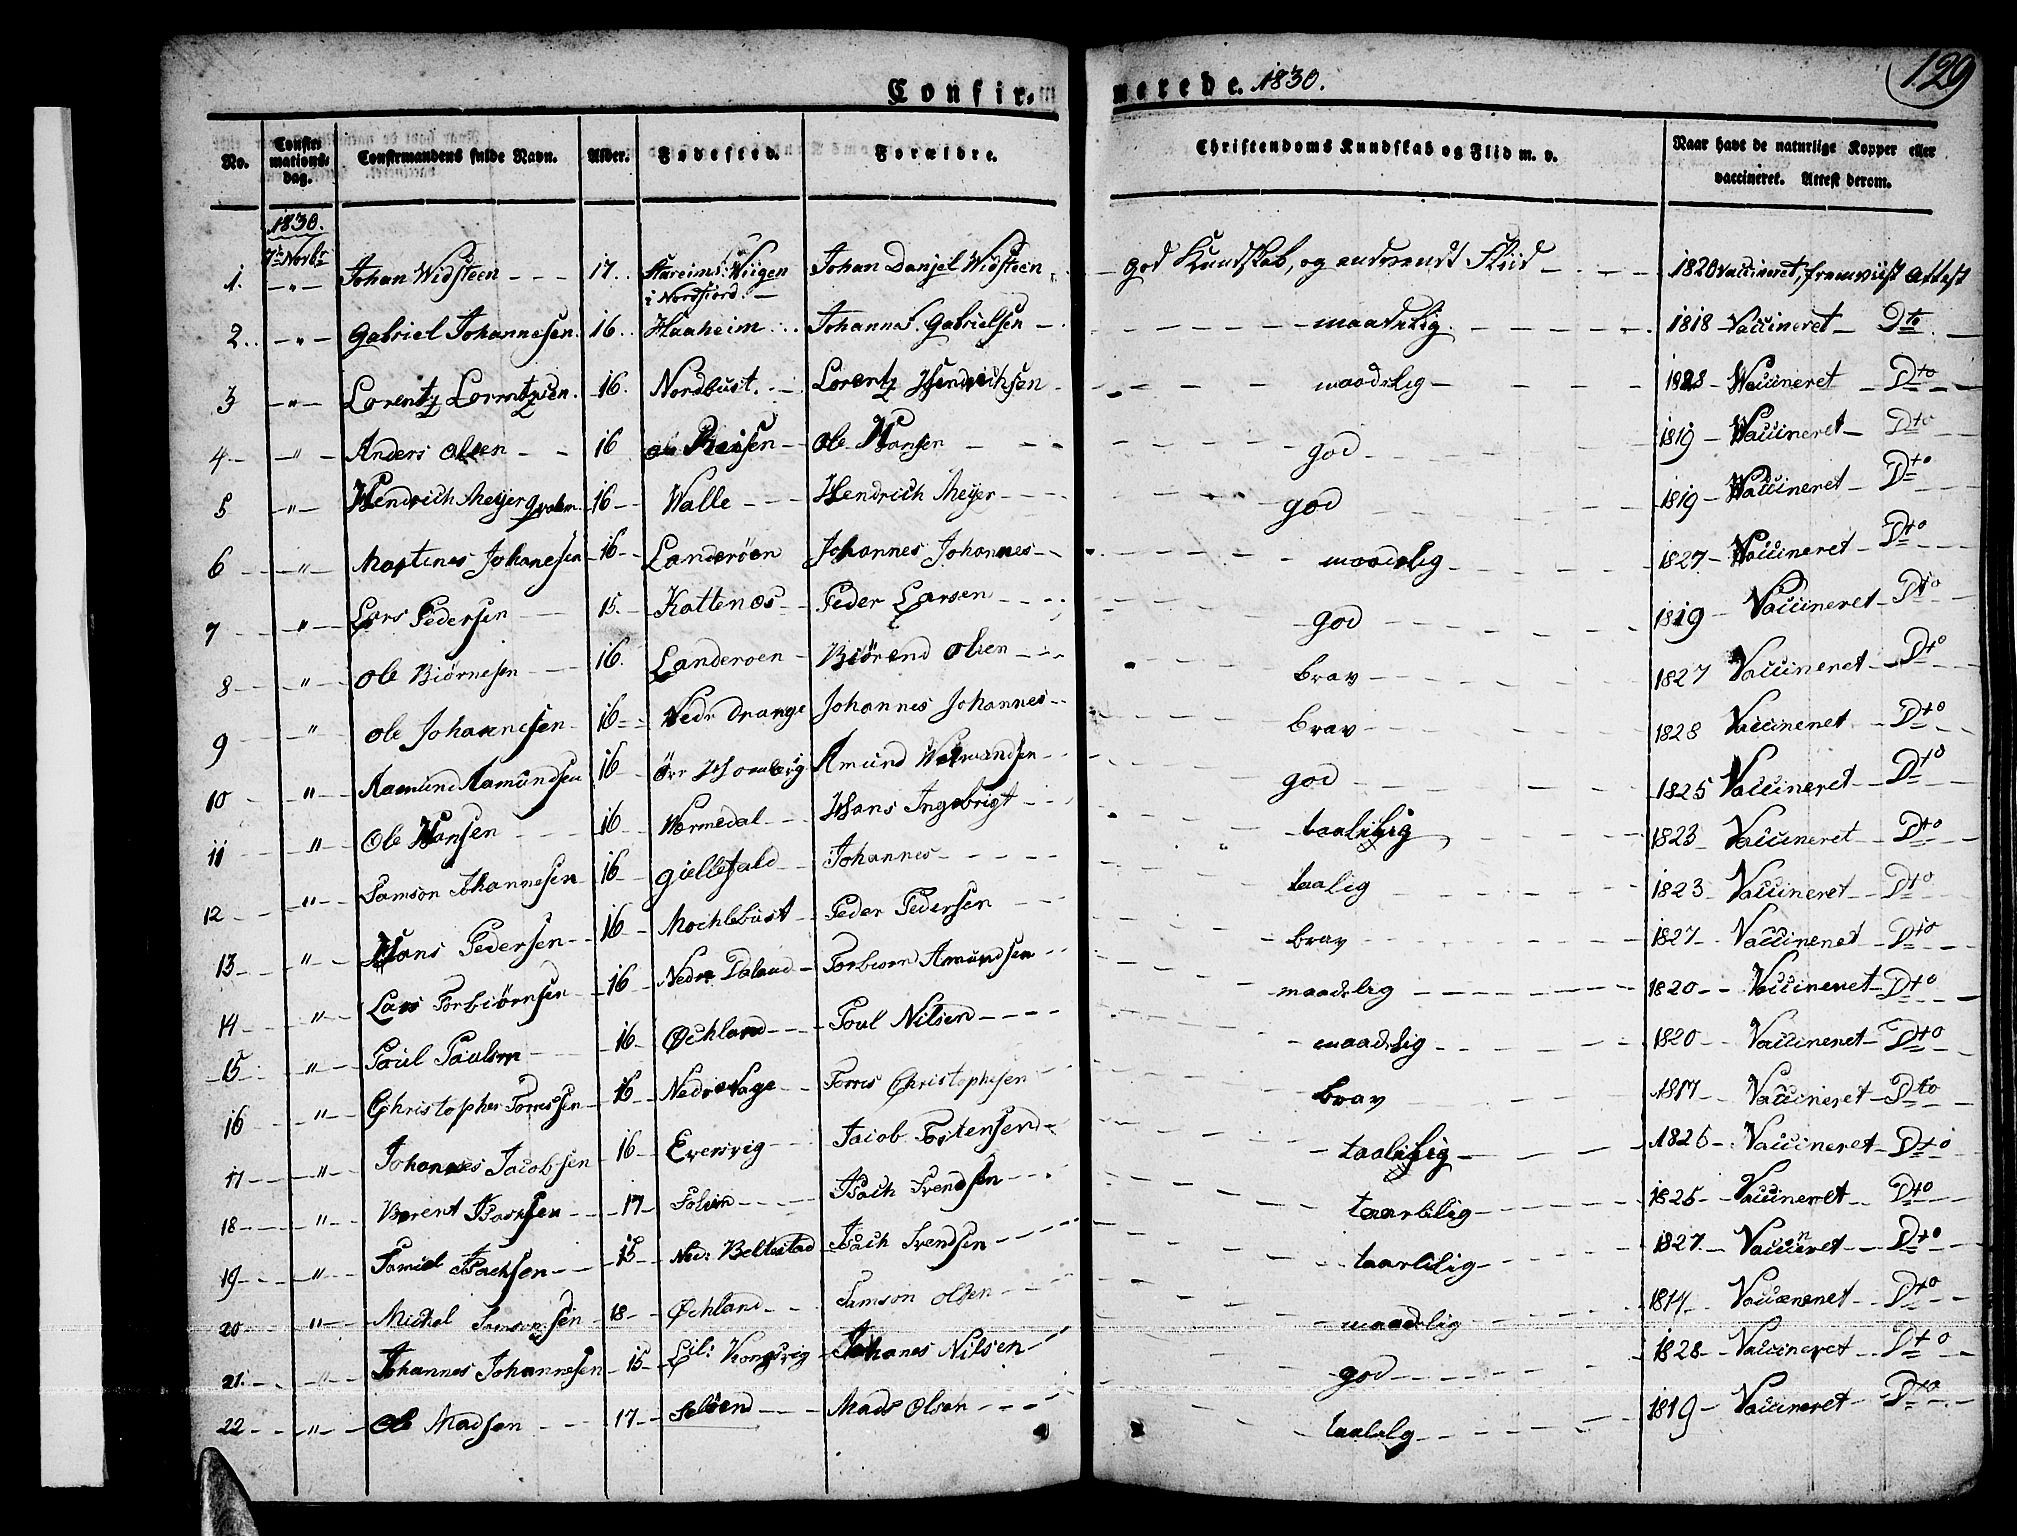 Confirmerede. 1830.
129
No. Confirmationsdag. Confirmandens fulde Navn. Alder. Fødested. Forældre. Christendoms Kundskab og Flid m. v. Naar havt de naturlige Kopper eller vaccineret. Attest derom.
1830.
7de Novbr
1. - " - Johan Widsteen - - - 17. Stareims: Wiigen i Nordfiord. - Johan Danjel Widsteen god Kundskab, og anvendt Fliid - 1820 vaccineret, fremviist Attest
2. - " - Gabriel Johannesen. 16. Haaheim Johannes. Gabrielsen - maadelig - 1818 - Vaccineret - Dto
3 - " - Lorentz Lorentzsen. 16. Nordbust. - Lorentz Hendrichsen - maadelig - 1828 - Vaccineret - Dto
4 - " - Anders Olsen - - 16 Reisen - Ole Hansen - god - 1819 - Vaccineret - Dto
5 - " - Hendrich Meyer 16 - Walle - - Hendrich Meyer - god - 1819 - Vaccineret - Dto
6 - " - Martines Johanesen 16 - Landerøen Johannes Johannes - maadelig - 1827 - Vaccineret - Dto
7 - " - Lars Pedersen 15. - Kattenes - Peder Larsen - god - 1819 - Vaccineret - Dto
8 - " - Ole Biørnesen - 16. Landeroen - Biørend Olsen - brav - 1827 Vaccineret - Dto
9 " Ole Johannesen - 16 - Nedr Drange Johannes Johannes - brav - 1828 Vaccineret - Dto
10 - " - Aamund Aamundsen 16 - Amund god - 1825 Vaccineret - Dto
11 - " - Ole Hansen - 16 - Wormedal - Hans Ingebrigt - taalilig - 1823 - Vaccineret - Dto
12 - " - Samson Johannesen - 16 - Gillesald - Johannes - taalig 1823 - Vaccineret - Dto
13 - " - Hans Pedersen - 16 - Mochlebust - Peder Pedersen - brav - 1827 - Vaccineret - Dto
14 - " - Lars Torbiørnsen - 16 - Nedre Daland - Torbiorn Amundsen - maadelig - 1820 - Vaccineret - Dto
15 - " - Poul Paulsen - 16 - Øchland - Poul Nilsen - maadelig - 1820 - Vaccineret - Dto
16 - " - Christopher Torressen - 16 - Nedrevage - Torres Christophesen brav - 1817 - Vaccineret - Dto
17 - " - Johannes Jacobsen 16 - Evensvig - Jacob Tostensend - taalilig - 1826 - Vaccineret - Dto
18 - " - Berent Isachsen - 17 - Solem - Isach Svendsen - taarlilig - 1825 - Vaccineret - Dto
19 - " - Samuel Isachsen - 15 - Ned: Beltestad - Isach Svendsen - taarlilig - 1827. - Vaccineret - Dto
20 - " - Michel Samsonsen - 18 - Øchland - Samson Olsen - maadelig - 1817 - Vaccenenet - Dto
21. - " - Johannes Johannesen - 15 - Lil: Kongsvig - Johanes Nilsen - god - 1828 - Vaccineret - Dto
22 - " - Ole Madsen - 17 - Seløend - Mads Olsen - taalelg - 1819 - Vaccineret - Dto